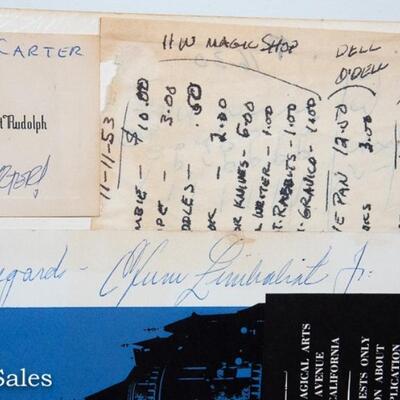 CARTER
t Rudolph
HW MAGIC SHOP
DELL
O'DELL
11-11-53
MBIE - $10.00
PE - 3.00
DDLES - .50
OK - 2.00
OR KNIVES - 6.00
L WRITER - 1.00
T. RABBITS - 1.00
GRAVICO - 1.00
IE PAN 12.50
OKS 3.00
egards - Efrem Zimbalist Jr.
Sales
AGICAL ARTS
AVENUE
CALIFORNIA
ESTS ONLY
ON ABOUT
PLICATION